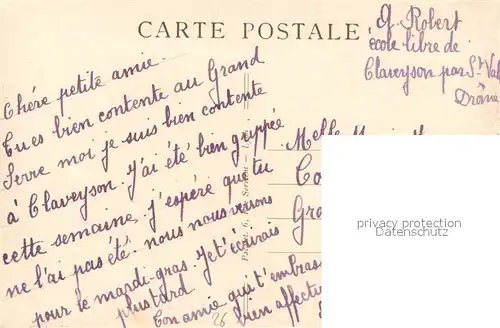 CARTE POSTALE
A. Robert
école libre de
Claveyson par St Val
Drôme
Chère petite amie.
Tu es bien contente au Grand
Serre moi je suis bien contente
à Claveyson. J'ai été bien grippée
cette semaine. j'espère que tu
ne l'ai pas été. nous nous verrons
pour le mardi-gras. Je t'écrirais
plus tard
Ton amie qui t'embras
bien affectu
Melle
Co
Gra
privacy protection
Datenschutz
26